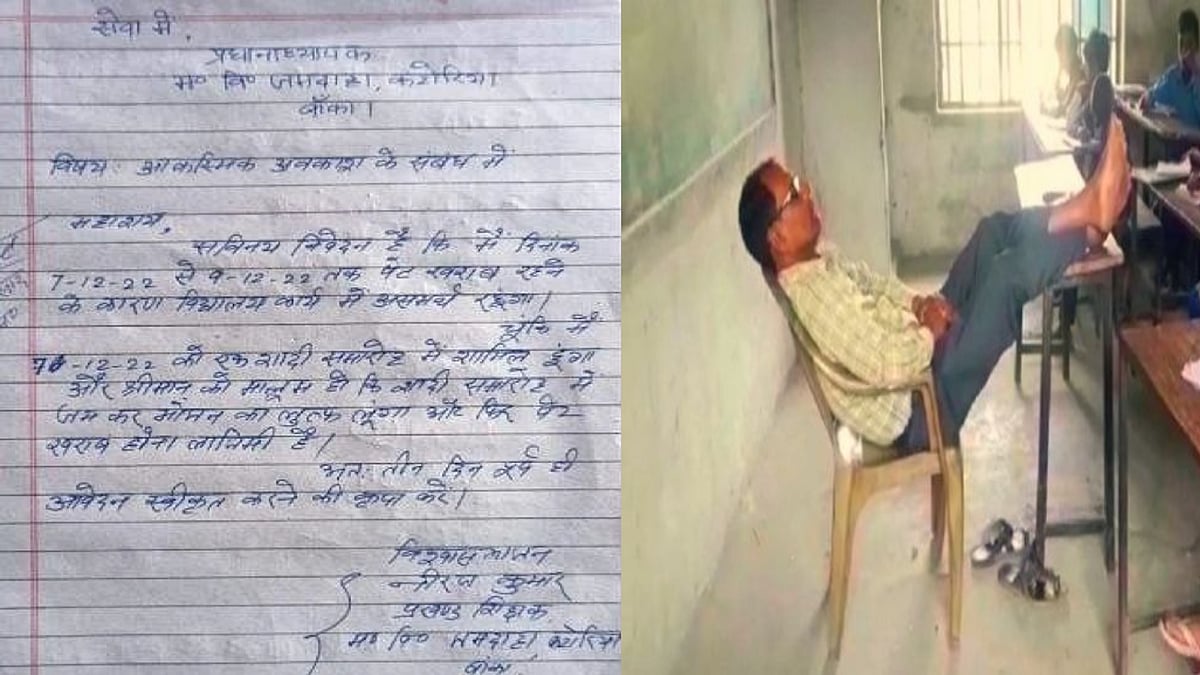 सेवा में,
प्रधानाध्यापक
म० वि० जमदाहा, कटोरिया
बाँका।
विषय: आकस्मिक अवकाश के संबंध में
महाशय,
सविनय निवेदन है कि मैं दिनांक
7-12-22 से 9-12-22 तक पेट खराब रहने
के कारण विद्यालय कार्य में असमर्थ रहूंगा।
चूंकि मैं
-12-22 को एक शादी समारोह में शामिल हूंगा
और श्रीमान को मालूम हो कि शादी समारोह में
जम कर भोजन का लुत्फ लूंगा और फिर पेट
खराब होना लाजिमी है।
अतः तीन दिन पूर्व ही
आवेदन स्वीकृत करने की कृपा करें।
विश्वासभाजन
नीरज कुमार
प्रखण्ड शिक्षक
म० वि० जमदाहा, कटोरिया
बाँका